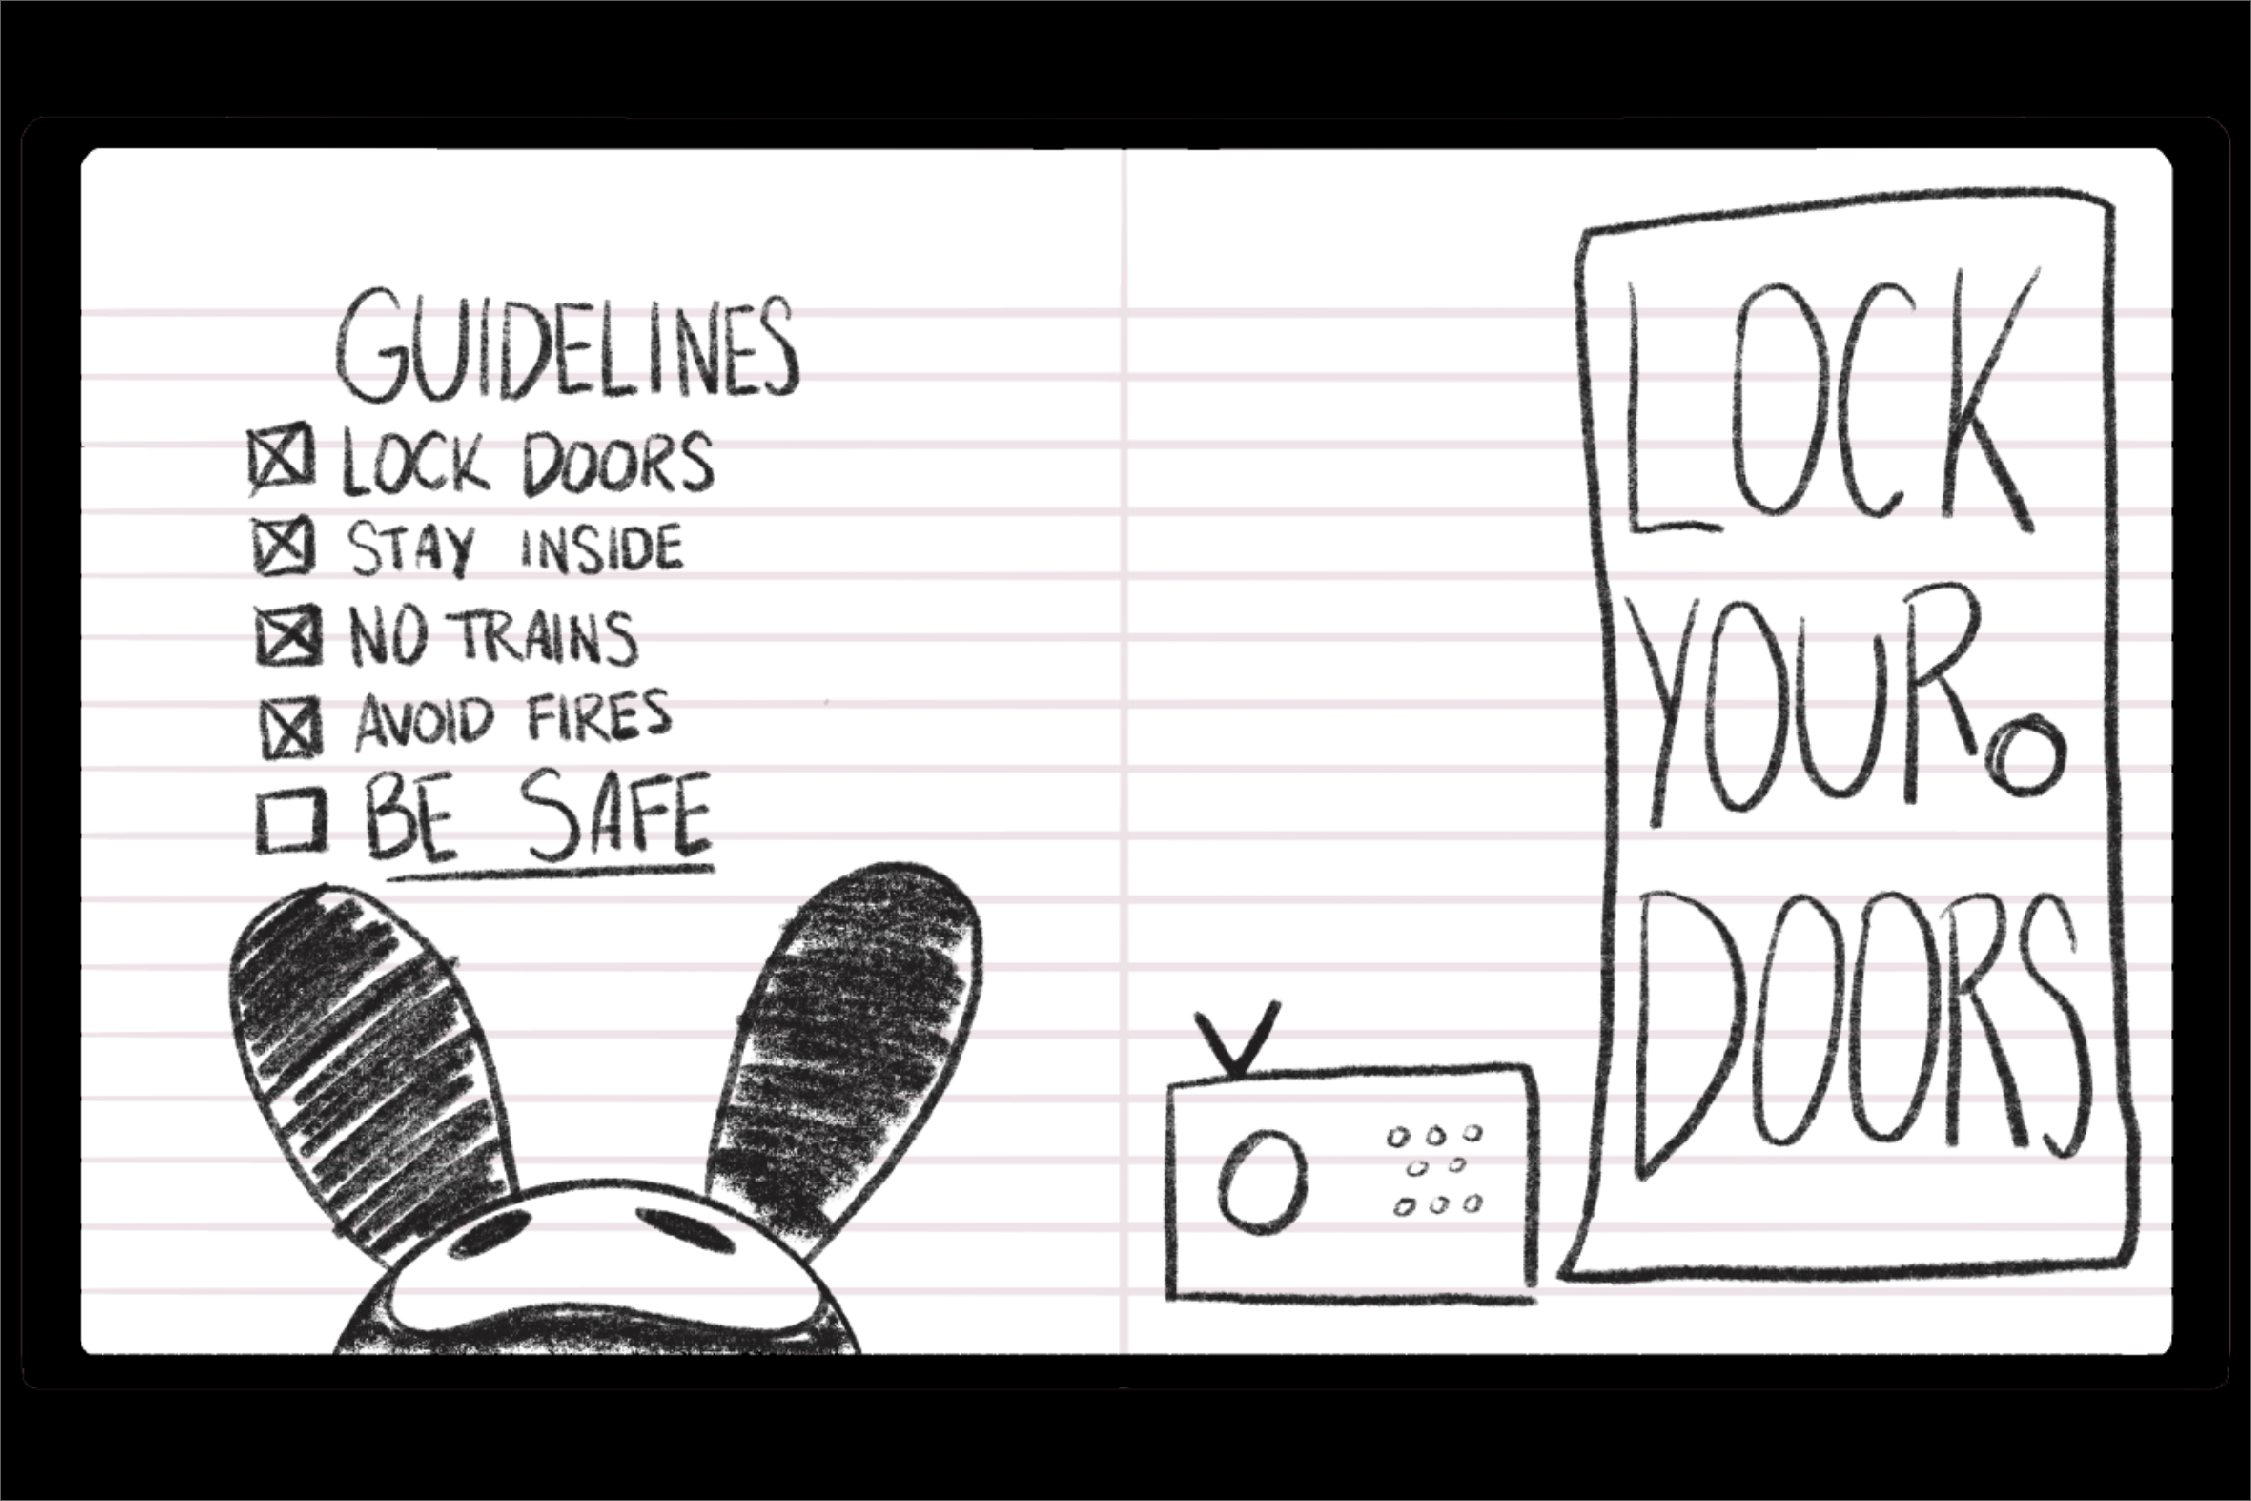 GUIDELINES
LOCK DOORS
STAY INSIDE
NO TRAINS
AVOID FIRES
BE SAFE
LOCK
YOUR
DOORS